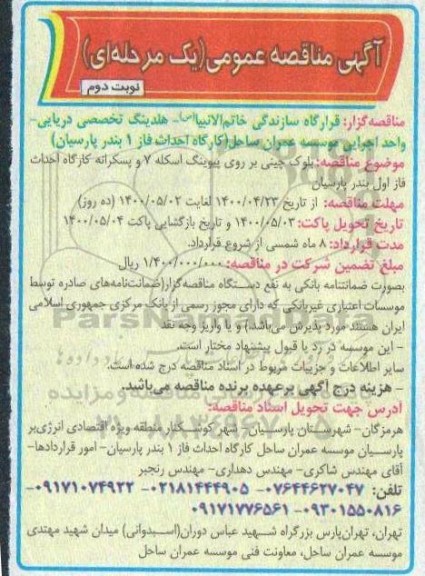 آگهی مناقصه عمومی(یک مرحله‌ای)
نوبت دوم
مناقصه‌گزار: قرارگاه سازندگی خاتم‌الانبیا(ص)- هلدینگ تخصصی دریایی-
واحد اجرایی موسسه عمران ساحل(کارگاه احداث فاز ۱ بندر پارسیان)
موضوع مناقصه: بلوک چینی بر روی پیوینگ اسکله ۷ و پسکرانه کارگاه احداث
فاز اول بندر پارسیان
مهلت مناقصه: از تاریخ ۱۴۰۰/۰۴/۲۳ لغایت ۱۴۰۰/۰۵/۰۲ (ده روز)
تاریخ تحویل پاکت: ۱۴۰۰/۰۵/۰۳ و تاریخ بازگشایی پاکت ۱۴۰۰/۰۵/۰۴
مدت قرارداد: ۸ ماه شمسی از شروع قرارداد.
مبلغ تضمین شرکت در مناقصه: ۱/۴۰۰/۰۰۰/۰۰۰ ریال
بصورت ضمانتنامه بانکی به نفع دستگاه مناقصه‌گزار(ضمانت‌نامه‌های صادره توسط
موسسات اعتباری غیربانکی که دارای مجوز رسمی از بانک مرکزی جمهوری اسلامی
ایران هستند مورد پذیرش می‌باشد.) و یا واریز وجه نقد
- این موسسه در رد یا قبول پیشنهاد مختار است.
سایر اطلاعات و جزییات مربوط در اسناد مناقصه درج شده است.
- هزینه درج آگهی برعهده برنده مناقصه می‌باشد.
آدرس جهت تحویل اسناد مناقصه:
هرمزگان- شهرستان پارسیان- شهر کوشکنار منطقه ویژه اقتصادی انرژی‌بر
پارسیان موسسه عمران ساحل کارگاه احداث فاز ۱ بندر پارسیان- امور قراردادها-
آقای مهندس شاکری- مهندس دهداری- مهندس رنجبر
تلفن: ۰۷۶۴۴۶۲۷۰۴۷- ۰۲۱۸۱۴۴۴۹۰۵- ۰۹۱۷۱۰۷۴۹۲۲-
۰۹۳۰۱۵۵۰۸۱۶- ۰۹۱۷۱۷۷۶۵۶۱
تهران، تهران‌پارس بزرگراه شهید عباس دوران(استیدوانی) میدان شهید مهتدی
موسسه عمران ساحل، معاونت فنی موسسه عمران ساحل
ParsNamadData